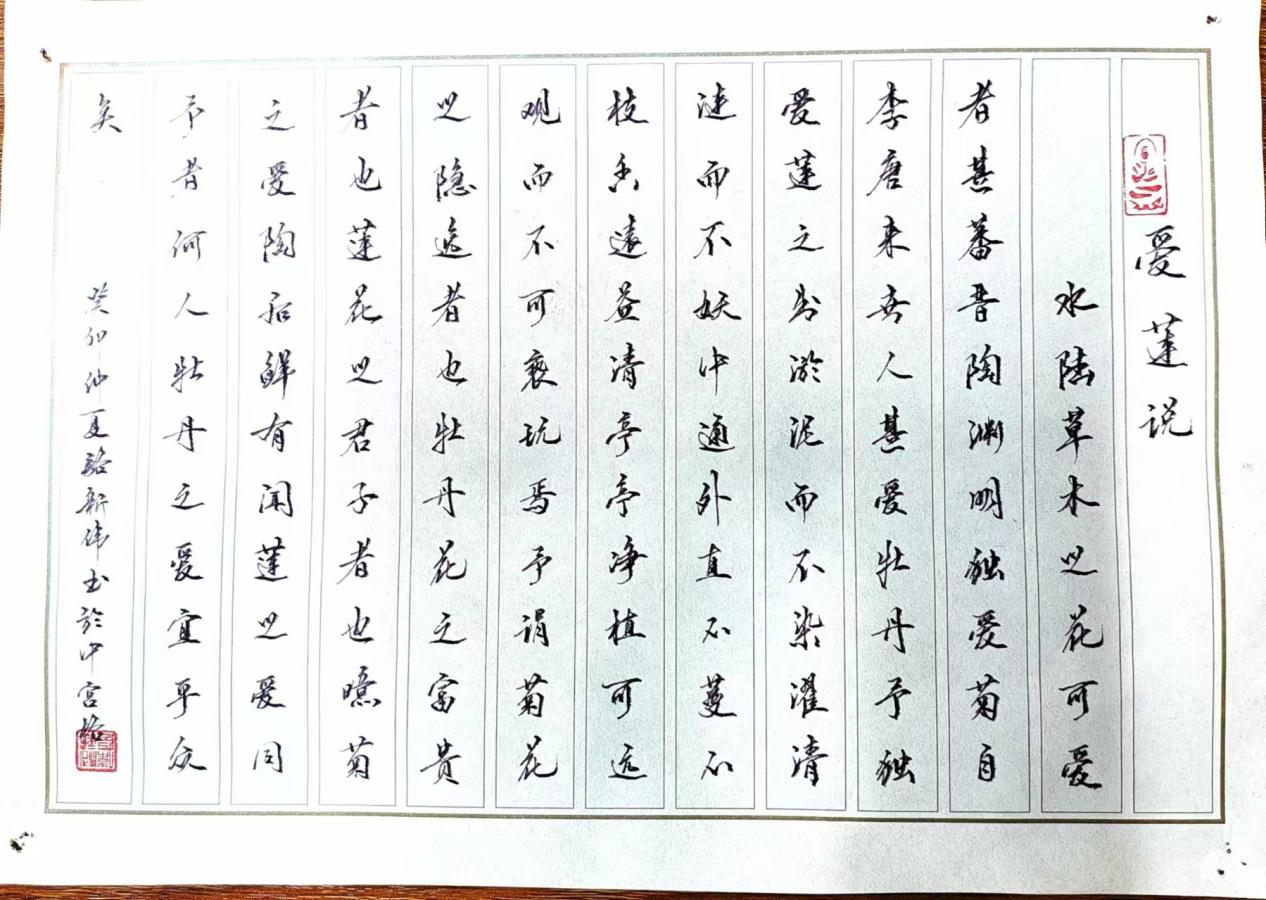 爱莲说
水陆草木之花可爱
者甚蕃晋陶渊明独爱菊自
李唐来世人甚爱牡丹予独
爱莲之出淤泥而不染濯清
涟而不妖中通外直不蔓不
枝香远益清亭亭净植可远
观而不可亵玩焉予谓菊花
之隐逸者也牡丹花之富贵
者也莲花之君子者也噫菊
之爱陶后鲜有闻莲之爱同
予者何人牡丹之爱宜乎众
矣
癸卯仲夏骆新伟书於中宫